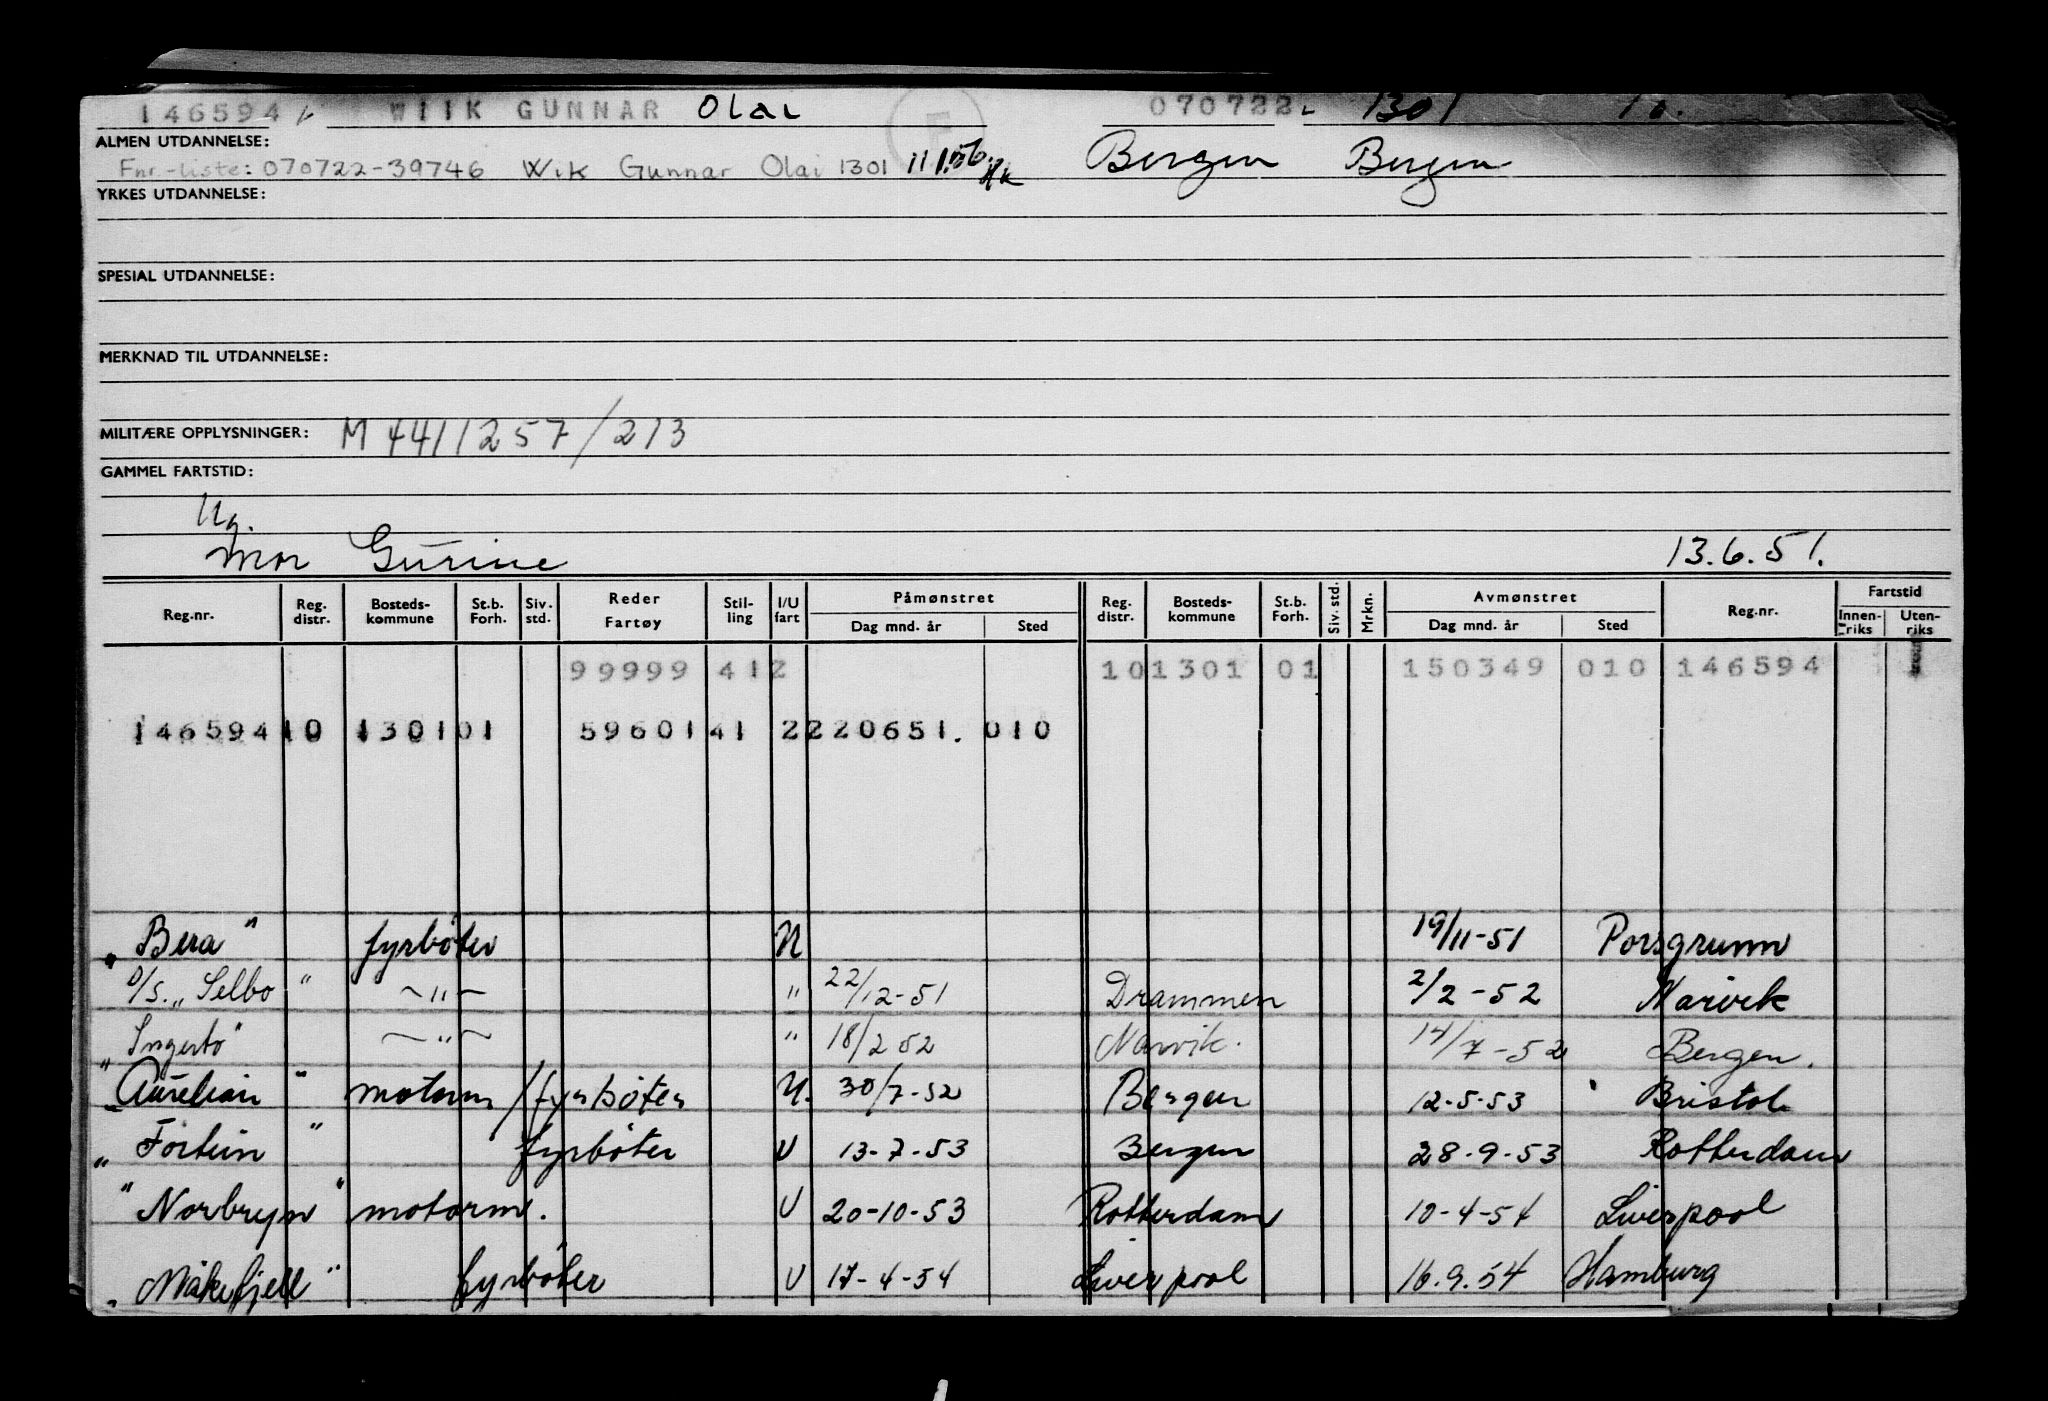 146594 WIIK GUNNAR Olai 070722 1301 10.
ALMEN UTDANNELSE:
Fnr.-liste: 070722-39746 Wik Gunnar Olai 1301 11.1.56 Bergen Bergen
YRKES UTDANNELSE:
SPESIAL UTDANNELSE:
MERKNAD TIL UTDANNELSE:
MILITÆRE OPPLYSNINGER: M 4411257/213
GAMMEL FARTSTID:
Ug.
Mor Gurine 13.6.51.
Reg.nr. Reg. distr. Bosteds-kommune St.b. Forh. Siv. std. Reder Fartøy Stil-ling I/U fart Påmønstret Dag mnd. år Sted Reg. distr. Bosteds-kommune St.b. Forh. Siv. std. Mrkn. Avmønstret Dag mnd. år Sted Reg.nr. Fartstid Innen-riks Uten-riks
99999 412 101301 01 150349 010 146594
146594 10 1301 01 59601 41 2 220651. 010
"Bera" fyrbøter U 19/11-51 Porsgrunn
D/S. "Selbo" -"- " 22/12-51 Drammen 2/2-52 Narvik
"Ingertö" -"- " 18/2 52 Narvik. 14/7-52 Bergen.
"Aurelian" motorm/fyrbøter U. 30/7-52 Bergen 12-5-53 Bristol
"Fortun" fyrbøter U 13-7-53 Bergen 28-9-53 Rotterdam
"Norbryn" motorm. U 20-10-53 Rotterdam 10-4-54 Liverpool
"Måkefjell" fyrbøter U 17-4-54 Liverpool 16.9.54 Hamburg